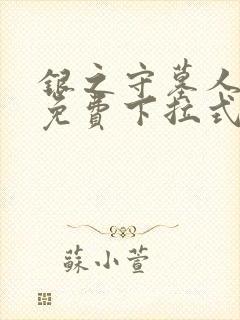 銀之守墓人
免費下拉式
蘇小萱